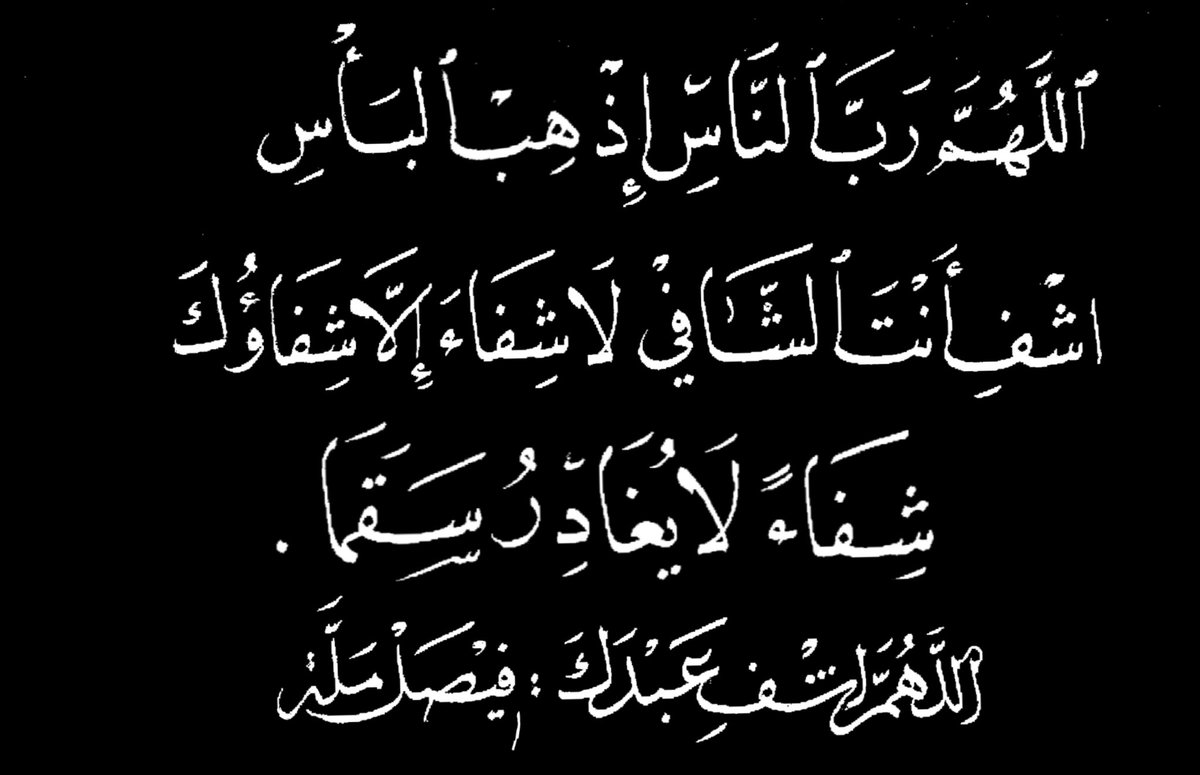 ٱللَّهُمَّ رَبَّ ٱلنَّاسِ إِذْهِبْ ٱلبَأْسِ
اشْفِ أَنْتَ ٱلشَّافِيْ لَا شِفَاءَ إِلَّا شِفَاؤُكَ
شِفَاءً لَا يُغَادِرُ سِقَمَا .
اللَّهُمَّ اشْفِ عَبْدَكَ : فَيْصَلْ مَلَّة